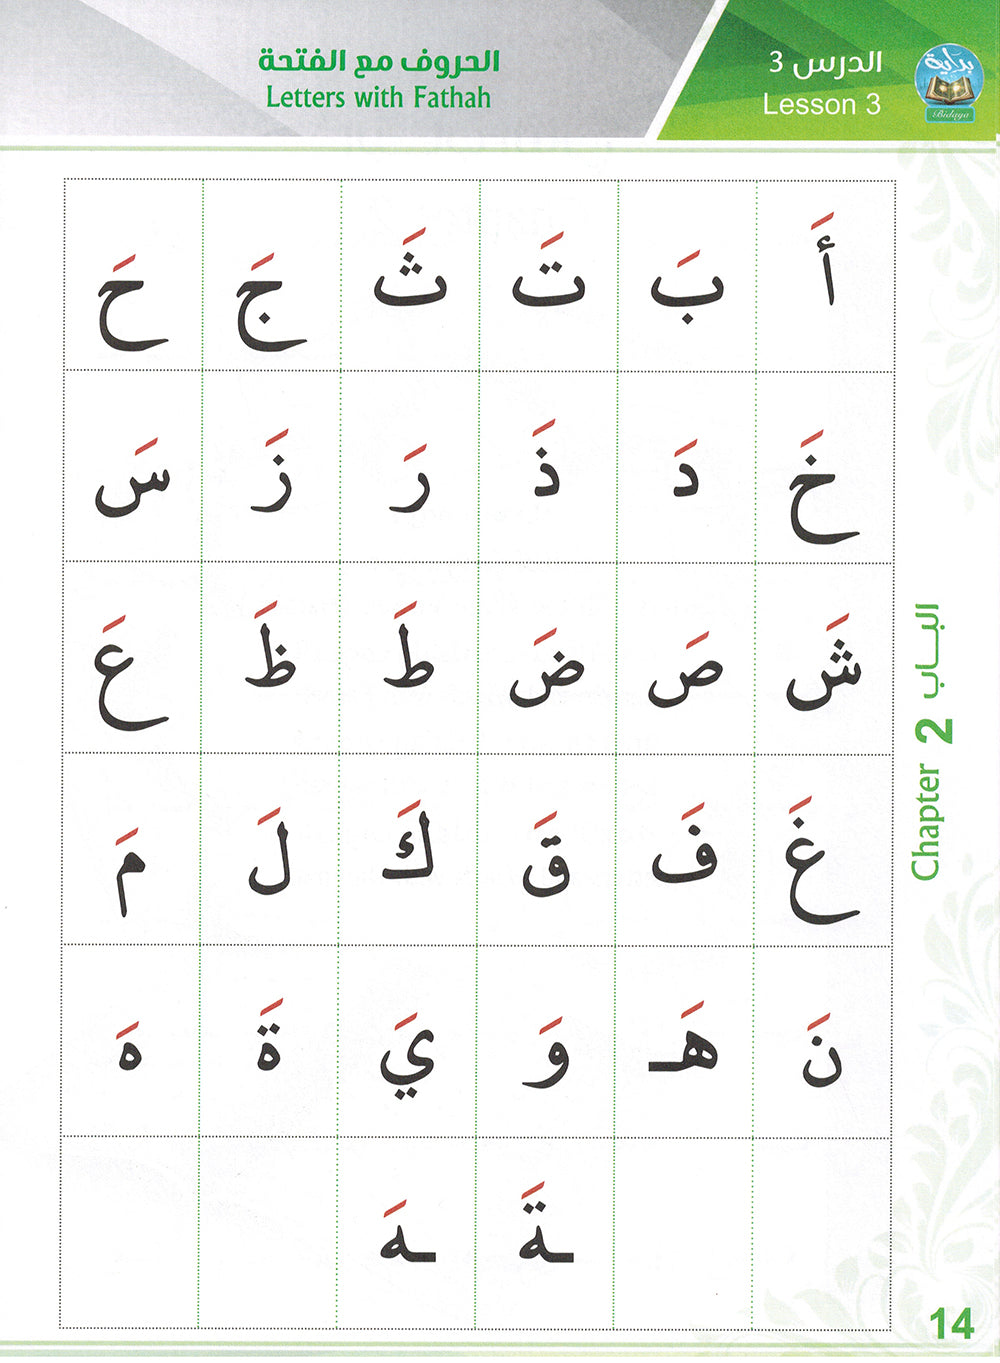 الحروف مع الفتحة
Letters with Fathah
الدرس 3
Lesson 3
بداية
Bidaya
أَ بَ تَ ثَ جَ حَ
خَ دَ ذَ رَ زَ سَ
شَ صَ ضَ طَ ظَ عَ
غَ فَ قَ كَ لَ مَ
نَ هَـ وَ يَ ةَ هَ
ـةَ ـهَ
البـاب
Chapter 2
14